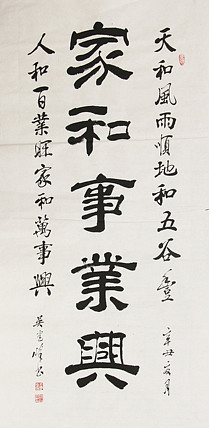 天和風雨順地和五谷豐
辛丑月
家和事業興
人和百業旺家和萬事興
吳书